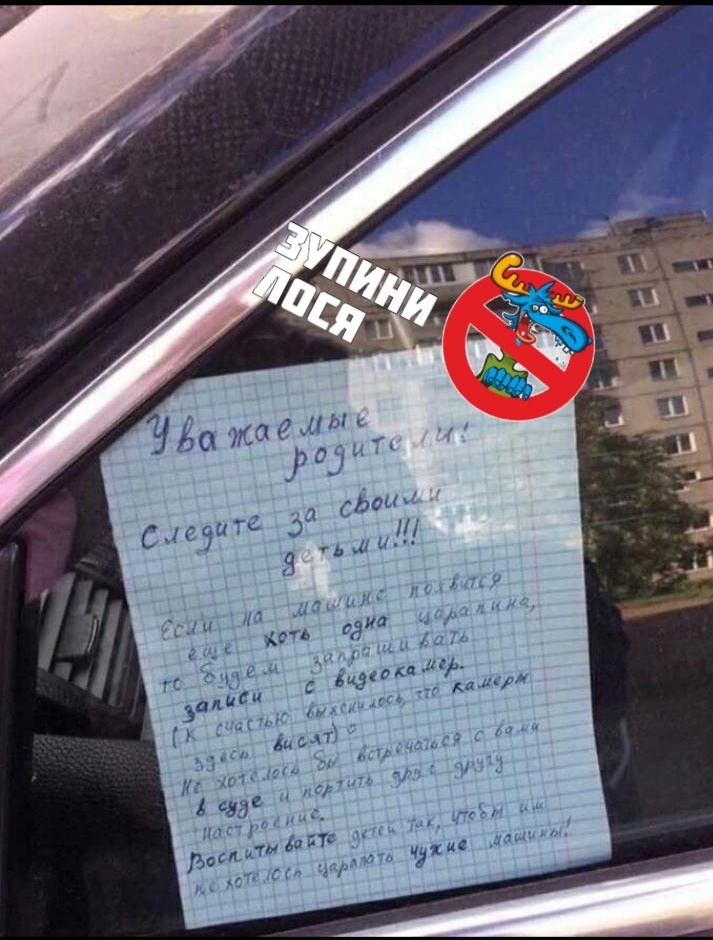 ЗУПИНИ
ЛОСЯ
Уважаемые
родители!
Следите за своими
детьми!!!
Если на машине появится
еще хоть одна царапина,
то будем запрашивать
записи с видеокамер.
(к счастью выяснилось, что камеры
здесь висят)
Не хотелось бы встречаться с вами
в суде и портить друг другу
настроение.
Воспитывайте детей так, чтобы им
не хотелось царапать чужие машины!